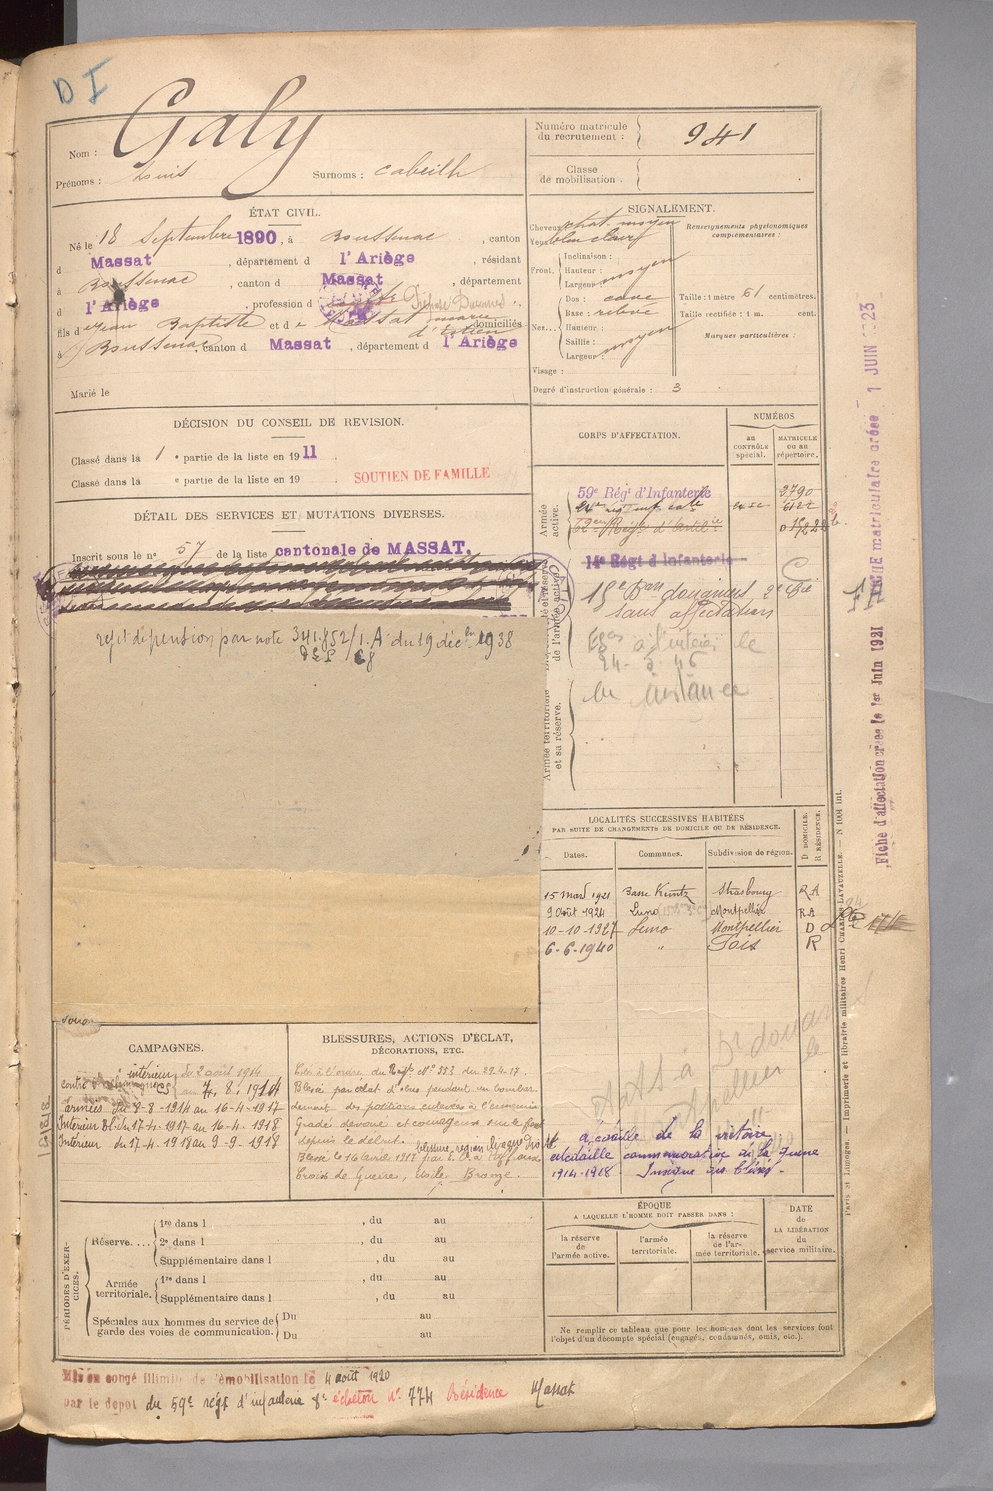 D I
Nom : Galy
Prénoms : Louis Surnoms : Cabeilh
Numéro matricule
du recrutement : 941
Classe
de mobilisation.
ÉTAT CIVIL.
Né le 18 Septembre 1890, à Boussenac, canton
d Massat, département d l'Ariège, résidant
à Boussenac, canton d Massat, département
d l'Ariège, profession d
fils d Jean Baptiste et d e marie domiciliés
à Boussenac, canton d Massat, département d l'Ariège
Marié le
SIGNALEMENT.
Cheveux chat. moyen
Yeux bleu clair
Renseignements physionomiques
complémentaires :
Front. Inclinaison :
Hauteur : moyen
Largeur :
Nez... Dos : cave
Base : relevé
Hauteur :
Saillie : moyen
Largeur
Taille : 1 mètre 61 centimètres.
Taille rectifiée : 1 m. cent.
Marques particulières :
Visage :
Degré d'instruction générale : 3
DÉCISION DU CONSEIL DE REVISION.
Classé dans la 1e partie de la liste en 1911
Classé dans la e partie de la liste en 19
SOUTIEN DE FAMILLE
DÉTAIL DES SERVICES ET MUTATIONS DIVERSES.
Inscrit sous le n° 57 de la liste cantonale de MASSAT.
refet de pension par note 341.852/1.A du 19 décbre 1938
CORPS D'AFFECTATION.
NUMÉROS
au
CONTRÔLE
spécial.
MATRICULE
OU AU
répertoire.
Armée
active.
59e Régt d'Infanterie 3790
14e Régt d'Infanterie
15e Bon douanes 2e Cie
sans affectation
24-5-46
Armée territoriale
et sa réserve.
LOCALITÉS SUCCESSIVES HABITÉES
PAR SUITE DE CHANGEMENTS DE DOMICILE OU DE RÉSIDENCE.
Dates. Communes. Subdivision de région. D DOMICILE. R RÉSIDENCE.
15 mars 1921 Basse Kuntz Strasbourg RA
9 Août 1924 Montpellier RA
10-10-1927 Montpellier D
6-6-1940 " Foix R
CAMPAGNES.
intérieur du 2 août 1914
au 7. 8. 1914
armées du 8-8-1914 au 16-4-1917
Intérieur Bl. du 17-4-1917 au 16-4-1918
Intérieur du 17-4-1918 au 9-9-1918
BLESSURES, ACTIONS D'ÉCLAT,
DÉCORATIONS, ETC.
Cité à l'ordre du Régt N° 353 du 29.4.17.
Blessé par éclat d'obus pendant un bombar-
dement des positions enlevées à l'ennemi
Gradé dévoué et courageux sur le front
depuis le début.
Blessé le 16 avril 1917
Croix de Guerre, Etoile Bronze.
Médaille de la victoire
Médaille commémorative de la guerre
1914-1918. Insigne des blessés.
PÉRIODES D'EXER-
CICES.
Réserve.... 1re dans l , du au
2e dans l , du au
Supplémentaire dans l , du au
Armée
territoriale. 1re dans l , du au
Supplémentaire dans l , du au
Spéciales aux hommes du service de
garde des voies de communication. Du au
Du au
ÉPOQUE
A LAQUELLE L'HOMME DOIT PASSER DANS :
la réserve
de l'armée active.
l'armée
territoriale.
la réserve
de l'ar-
mée territoriale.
DATE
de
LA LIBÉRATION
du
service militaire.
Ne remplir ce tableau que pour les hommes dont les services font
l'objet d'un décompte spécial (engagés, condamnés, omis, etc.).
Mis en congé illimité de démobilisation le 4 août 1920
par le depot du 59e régt d'infanterie 8e échelon n° 774 Résidence Massat
Fiche d'affectation créée le 1er Juin 1921
FICHE matriculaire créée 1 JUIN 1923
Paris et Limoges. — Imprimerie et librairie militaires Henri CHARLES-LAVAUZELLE. — N 1004 Int.